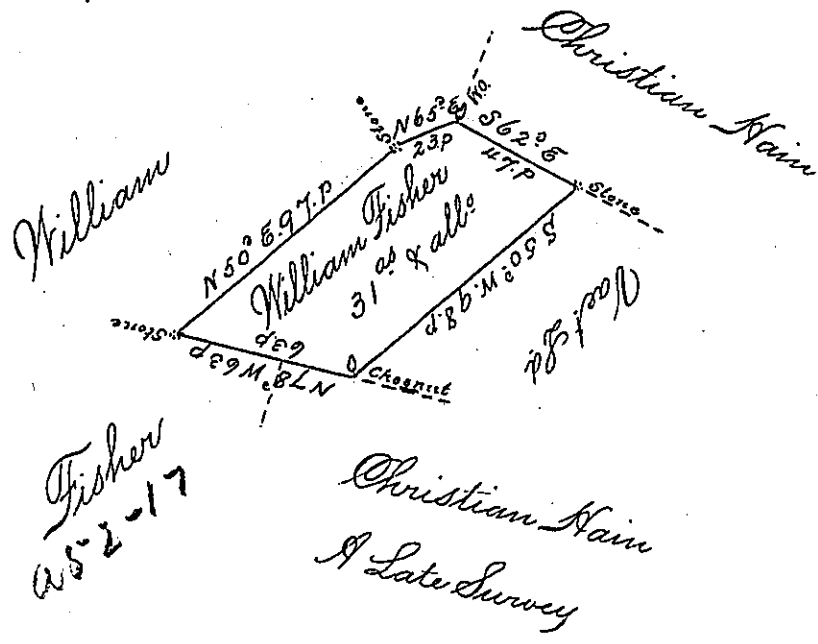 Christian Hain
William
Stone
N 65° E
23.p
W.O.
S 62° E
47.p
Stone
N 50° E. 97.p
William Fisher
31 as & allo
S 50° W. 98.p
Vact Ld
Stone
N 78° W 63 p
63.p
Chesnut
Fisher
A52-17
Christian Hain
A Late Survey